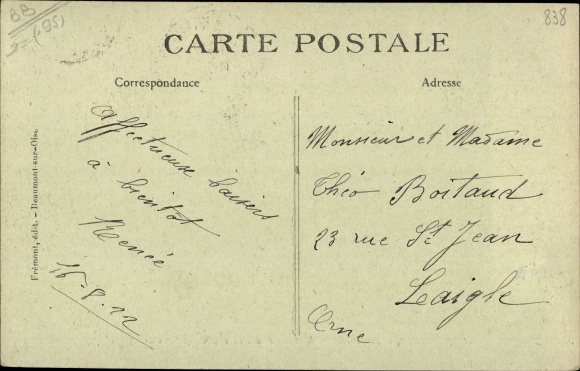 BB
838
CARTE POSTALE
Correspondance
Adresse
Affectueux baisers
à bientôt
Renée
16-8-22
Monsieur et Madame
Théo Boitaud
23 rue St Jean
Laigle
Orne
Frémont, édit. - Beaumont-sur-Oise.